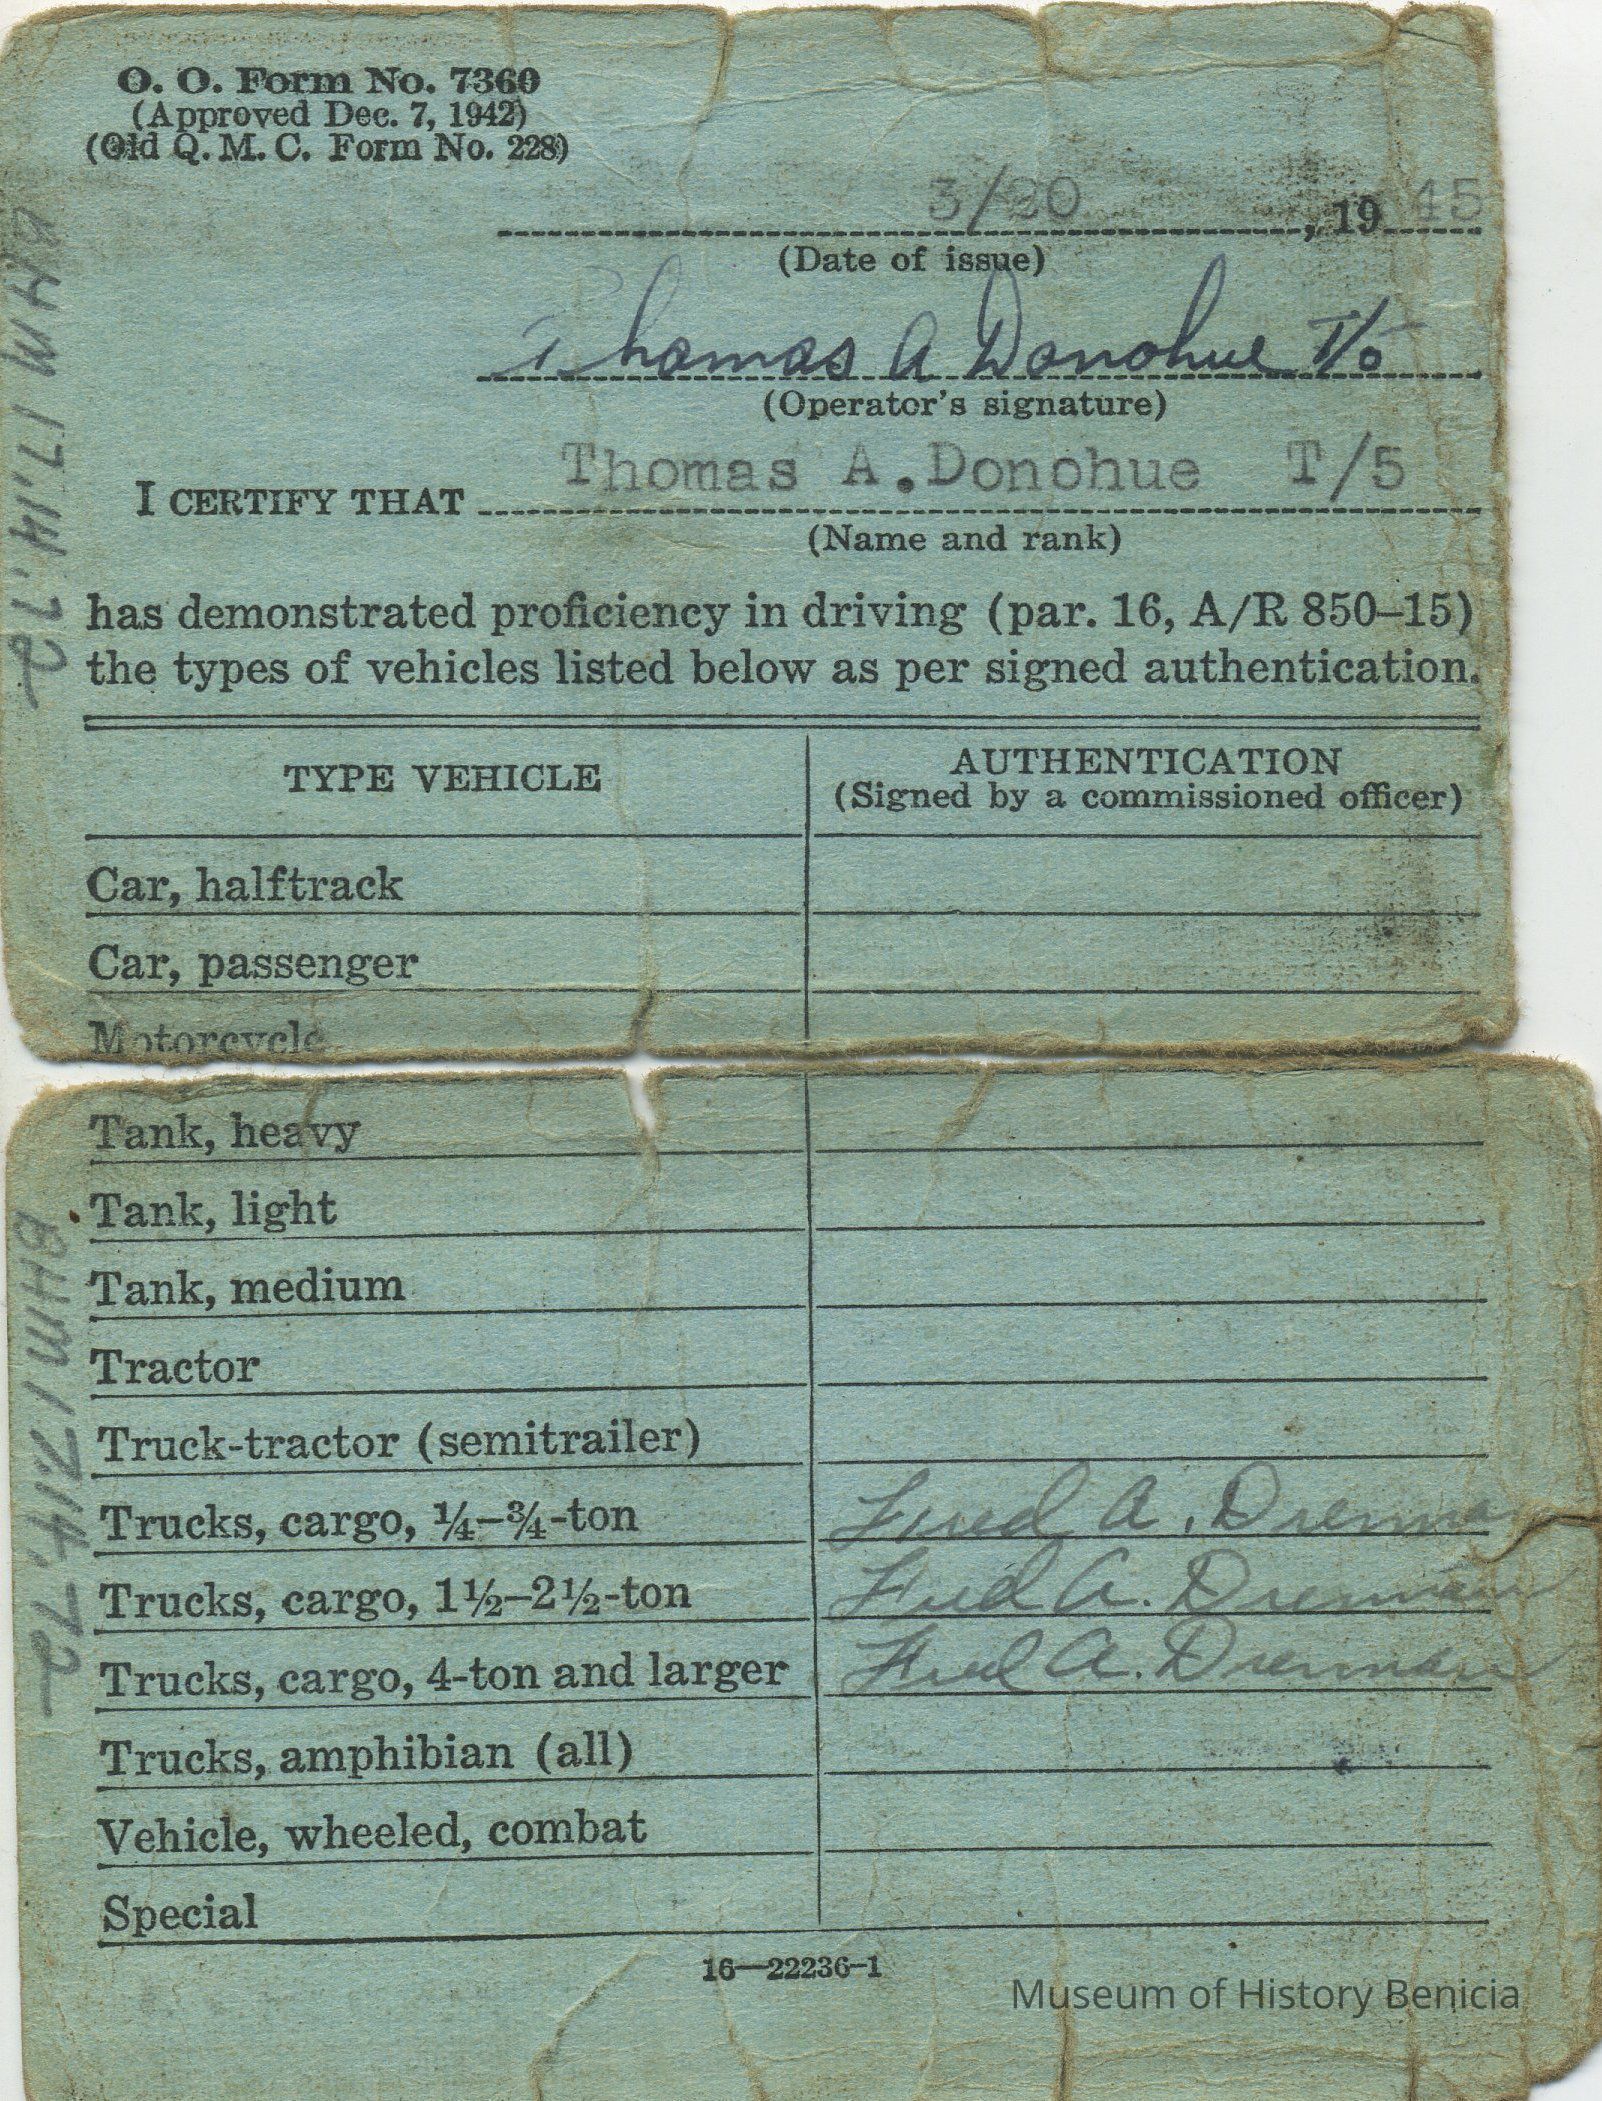 O. O. Form No. 7360
(Approved Dec. 7, 1942)
(Old Q. M. C. Form No. 228)
3/20, 1945
(Date of issue)
Thomas A Donohue T/5
(Operator's signature)
I CERTIFY THAT Thomas A. Donohue T/5
(Name and rank)
has demonstrated proficiency in driving (par. 16, A/R 850–15)
the types of vehicles listed below as per signed authentication.
TYPE VEHICLE
AUTHENTICATION
(Signed by a commissioned officer)
Car, halftrack
Car, passenger
Motorcycle
BHM 17.14.72
Tank, heavy
Tank, light
Tank, medium
Tractor
Truck-tractor (semitrailer)
Trucks, cargo, ¼–¾-ton Fred A. Drennan
Trucks, cargo, 1½–2½-ton Fred A. Drennan
Trucks, cargo, 4-ton and larger Fred A. Drennan
Trucks, amphibian (all)
Vehicle, wheeled, combat
Special
16—22236-1
BHM 17.14.72
Museum of History Benicia